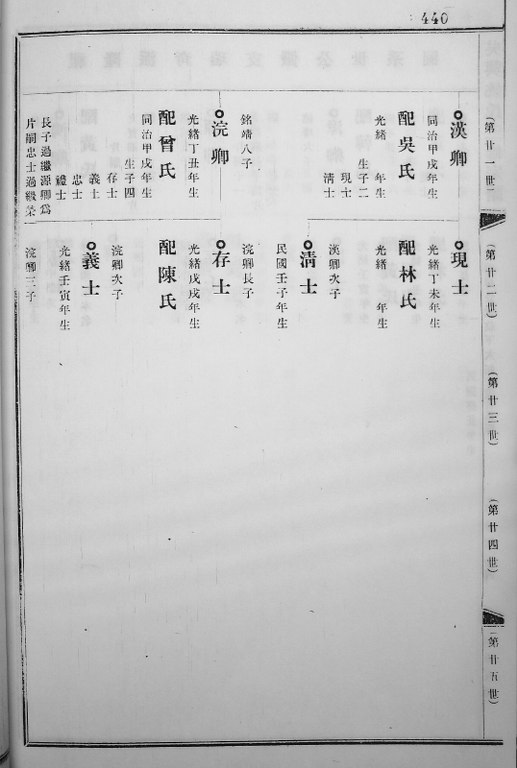 440
(第廿一世)
(第廿二世)
(第廿三世)
(第廿四世)
(第廿五世)
漢卿
同治甲戌年生
配吳氏
光緒　年生
生子二
現士
淸士
銘靖八子
浣卿
光緒丁丑年生
配曾氏
同治甲戌年生
生子四
存士
義士
忠士
禮士
長子過繼源卿爲
片嗣忠士過繼榮
現士
光緒丁未年生
配林氏
光緒　年生
漢卿次子
淸士
民國壬子年生
浣卿長子
存士
光緒戊戌年生
配陳氏
浣卿次子
義士
光緒壬寅年生
浣卿三子